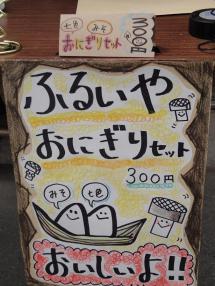 七色 みそ
おにぎりセット
300円
ふるいや
おにぎりセット
300円
みそ 七色
おいしいよ!!